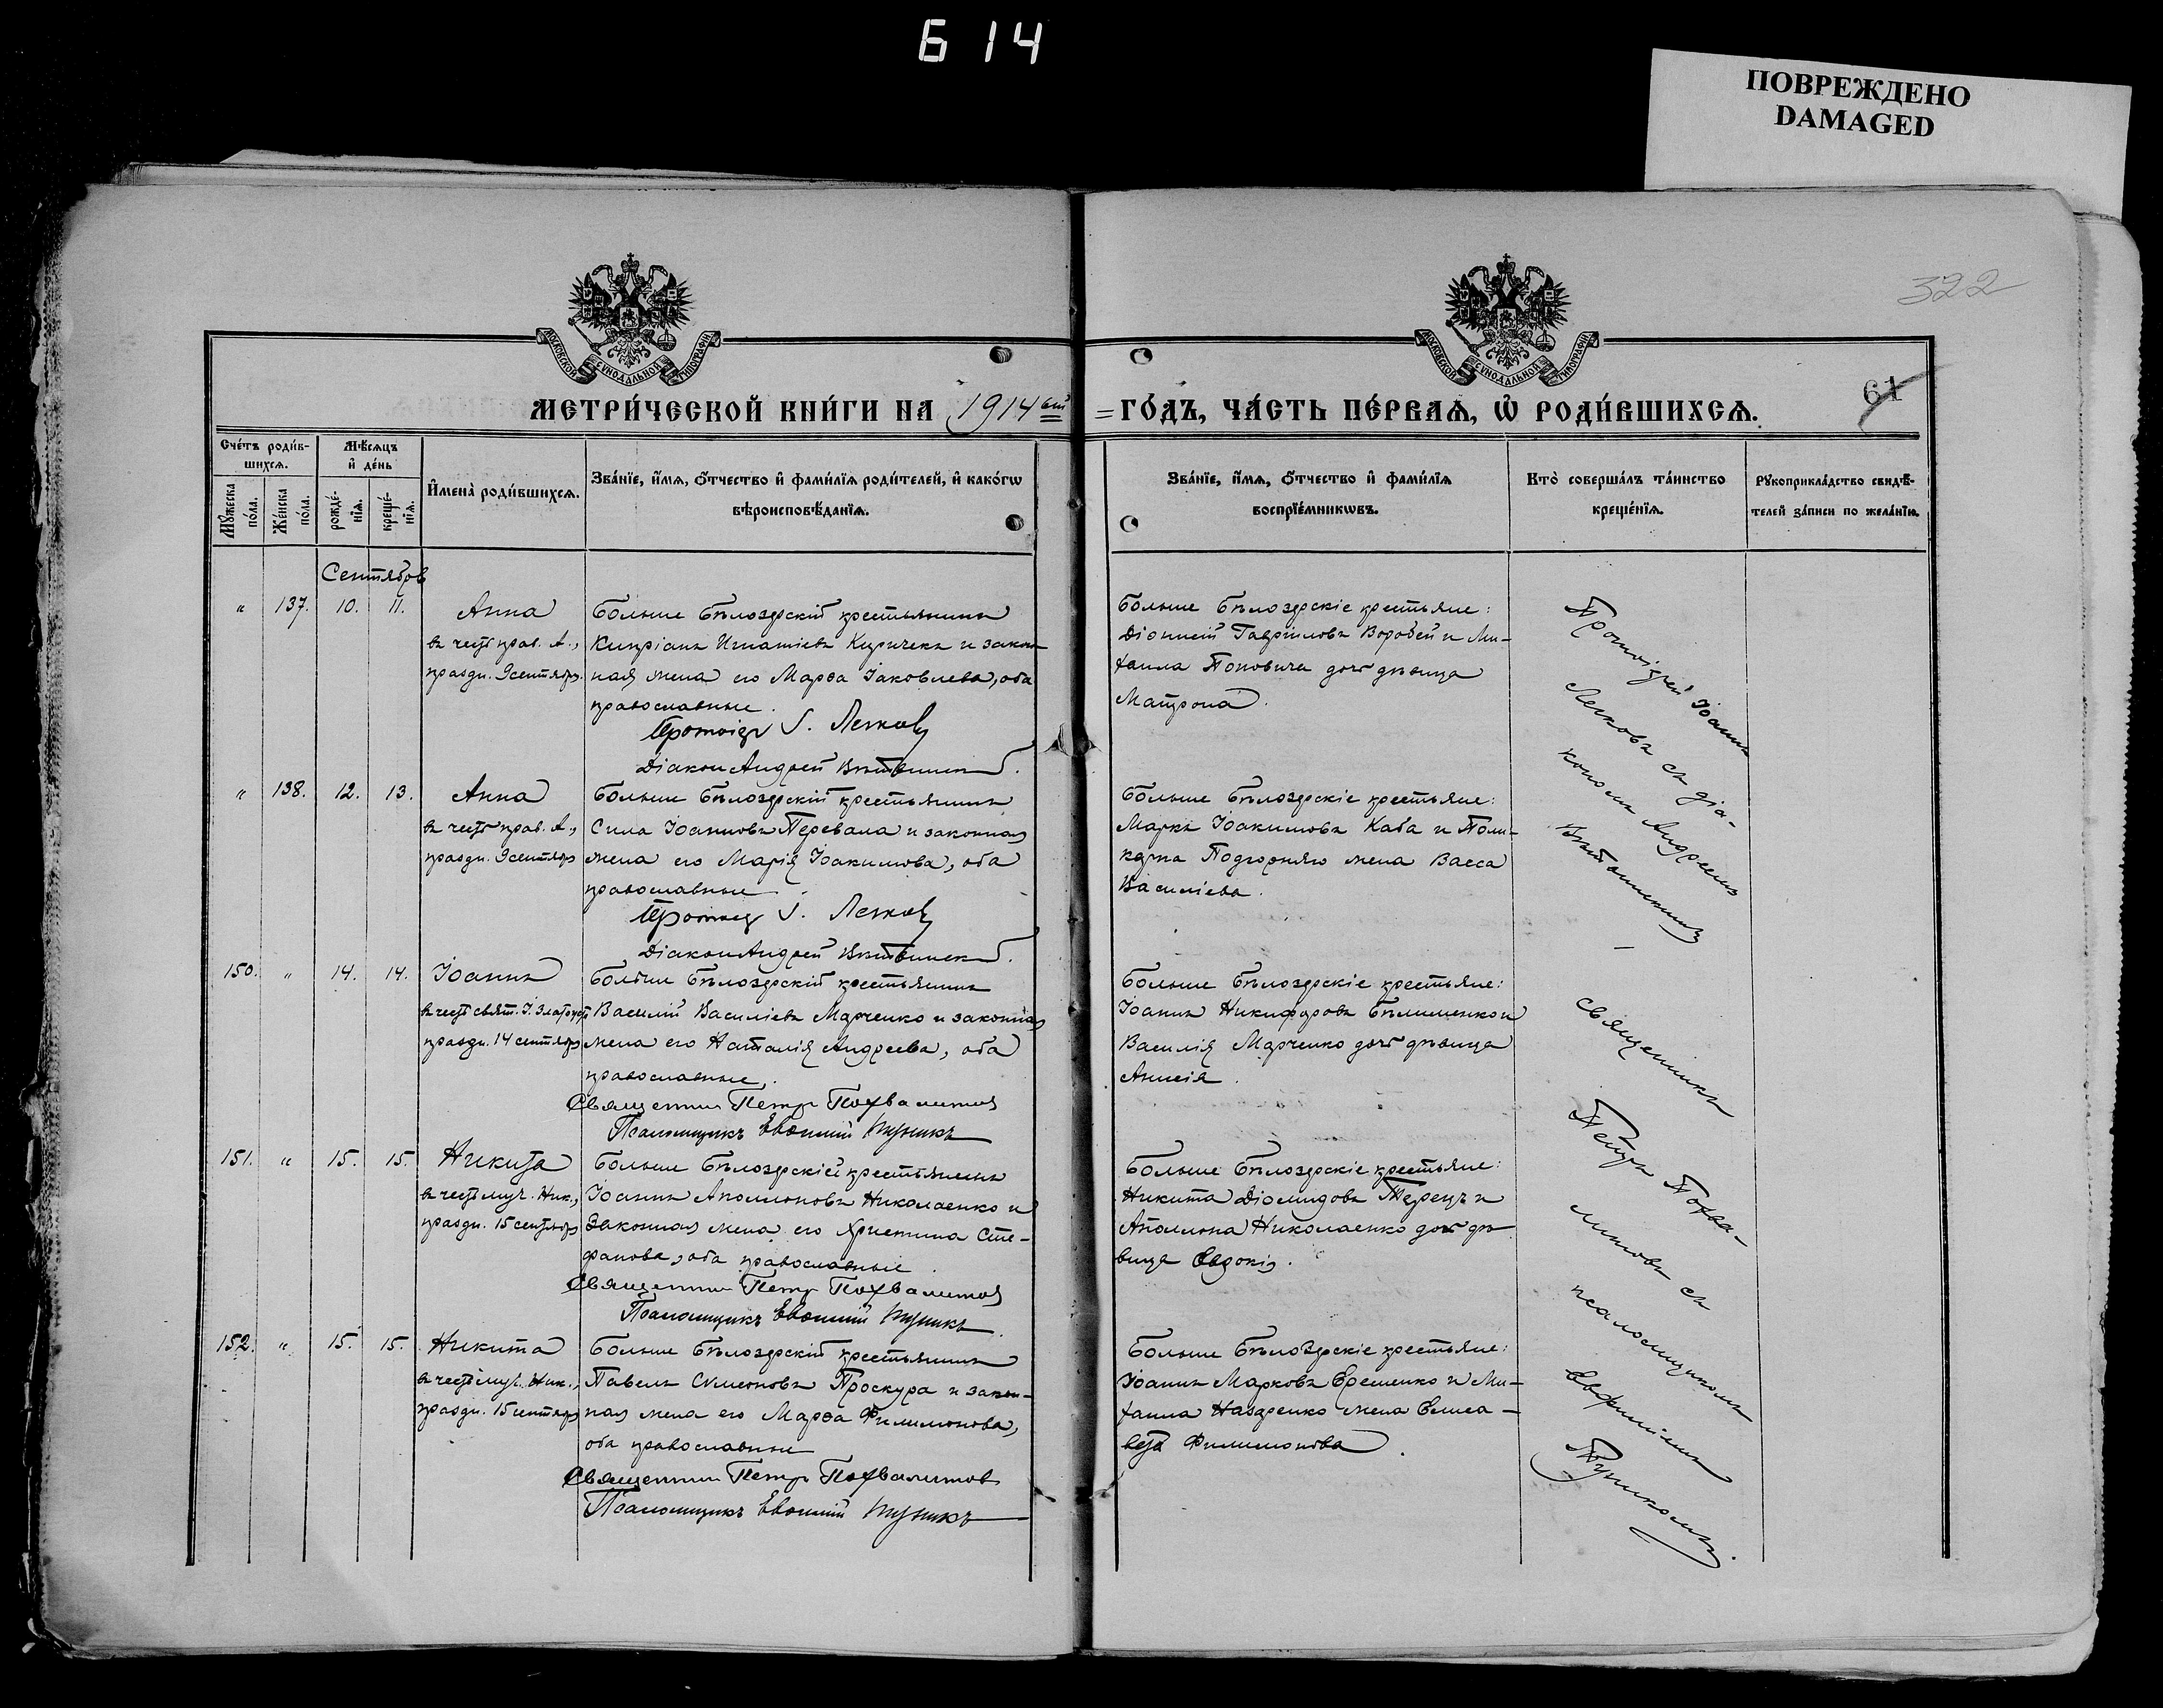 614
ПОВРЕЖДЕНО
DAMAGED
322
МОСКОВСКОЙ СѴНОДАЛЬНОЙ ТИПОГРАФІИ
МОСКОВСКОЙ СѴНОДАЛЬНОЙ ТИПОГРАФІИ
МЕТРИ́ЧЕСКОЙ КНИ́ГИ НА 1914 ый
=ГО́ДЪ, ЧА́СТЬ ПЕ́РВАѦ, Ѡ҆ РОДИ́ВШИХСѦ.
61
Сче́тъ роди́в-
шихсѧ.
Мѣ́сѧцъ
и҆ де́нь
Мꙋ́жеска по́ла.
Же́нска по́ла.
рожде́-нїѧ.
креще́-нїѧ.
И҆мена̀ роди́вшихсѧ.
Зва́нїе, и҆́мѧ, ѻ҆́тчество и҆ фами́лїѧ роди́телей, и҆ како́гѡ
вѣроисповѣ́данїѧ.
Зва́нїе, и҆́мѧ, ѻ҆́тчество и҆ фами́лїѧ
воспрїе́мникѡвъ.
Кто̀ соверша́лъ та́инство
креще́нїѧ.
Рꙋкоприкла́дство свидѣ́-
телей за́писи по жела́нїю.
Сентябрь
" 137. 10. 11.
Анна
въ честь прав. А.,
праздн. 9 сентября.
Больше Бѣлозерскій крестьянинъ
Кипріанъ Игнатіевъ Киричекъ и закон-
ная жена его Марѳа Іаковлева, оба
православные.
Протоіер І. Легковъ
Діаконъ Андрей
Больше Бѣлозерскіе крестьяне:
Діонисій Гавріиловъ Воробей и Ми-
хаила Поповича дочь дѣвица
Матрона.
Протоіерей Іоаннъ
Легковъ съ діа-
кономъ Андреемъ
" 138. 12. 13.
Анна
въ честь прав. А.,
праздн. 9 сентябр
Больше Бѣлозерскій крестьянинъ
Сила Іоанновъ Перевала и законная
жена его Марія Іоакимова, оба
православные.
Протоіер І. Легковъ
Діаконъ Андрей
Больше Бѣлозерскіе крестьяне:
Маркъ Іоакимовъ Каба и Поли-
карпа Подгорняго жена Васса
Василіева.
150. " 14. 14.
Іоаннъ
въ честь свят. І. Златоуст
праздн. 14 сентябр
Больше Бѣлозерскій крестьянинъ
Василій Василіевъ Марченко и законная
жена его Наталія Андреева, оба
православные.
Священник Петр Похвалитов
Псаломщикъ Евѳимій Пуникъ
Больше Бѣлозерскіе крестьяне:
Іоаннъ Никифоровъ и
Василія Марченко дочь дѣвица
Анисія.
Священникъ
Петръ Похва-
литовъ съ
псаломщикомъ
Евфиміемъ
Пуникомъ.
151. " 15. 15.
Никита
въ честь муч. Ник.,
праздн. 15 сентябр
Больше Бѣлозерскій крестьянинъ
Іоаннъ Аполлоновъ Николаенко и
законная жена его Христина Сте-
фанова, оба православные
Священник Петр Похвалитов
Псаломщикъ Евѳимій Пуникъ
Больше Бѣлозерскіе крестьяне:
Никита Діомидовъ Терецъ и
Аполлона Николаенко дочь дѣ-
вица Евдокія.
152. " 15. 15.
Никита
въ честь муч. Ник.,
праздн. 15 сентябр
Больше Бѣлозерскій крестьянинъ
Павелъ Симеоновъ Проскура и закон-
ная жена его Марѳа Филимонова,
оба православные
Священник Петр Похвалитов
Псаломщикъ Евѳимій Пуникъ
Больше Бѣлозерскіе крестьяне:
Іоаннъ Марковъ Еременко и Ми-
хаила Назаренко жена Елиса-
вета Филимонова.